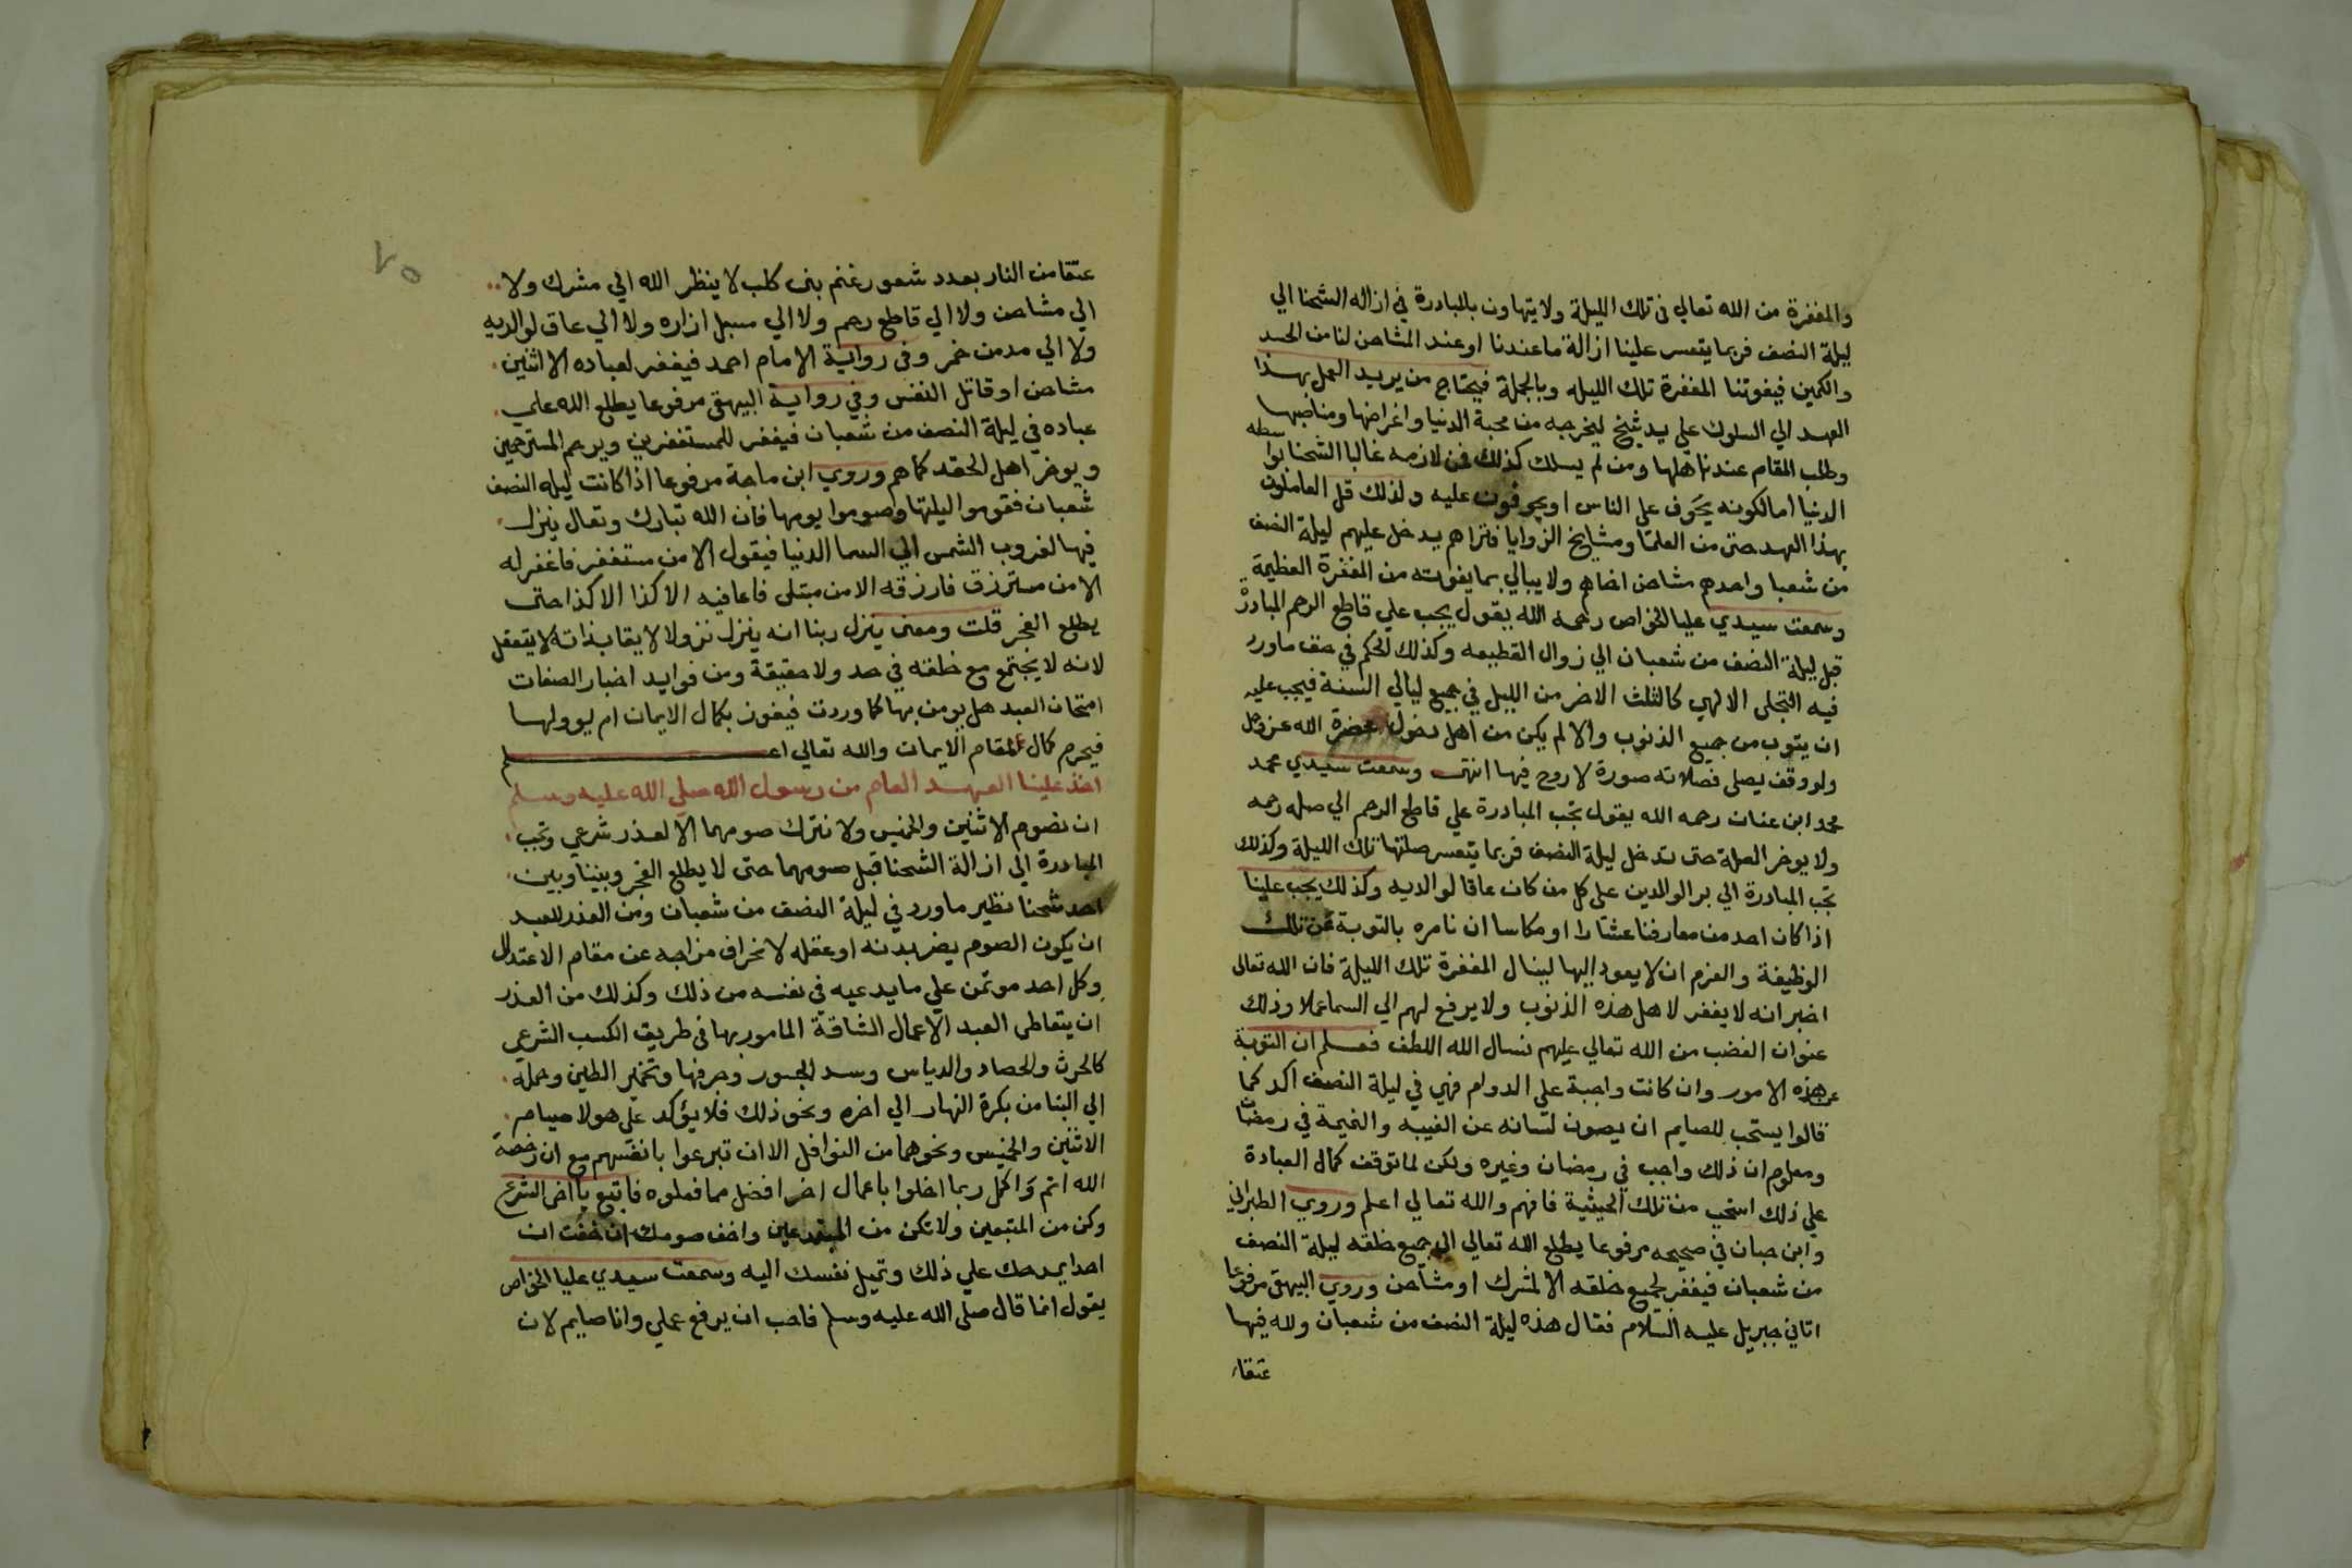 والمغفرة من الله تعالي في تلك الليلة ولا يتهاون بالمبادرة في ازاله الشحنا الي
ليلة النصف فربما يتعسر علينا ازالة ما عندنا او عند المشاحن لنا من الحسد
والكمين فيفوتنا المغفرة تلك الليله وبالجملة فيحتاج من يريد العمل بهذا
العهد الي السلوك علي يد شيخ ليخرجه من محبة الدنيا واغراضها ومناصبها
وطلب المقام عند اهلها ومن لم يسلك كذلك فمن لازمه غالبا الشحنا بواسطه
الدنيا اما لكونه يحرف علي الناس او يحرفون عليه ولذلك قل العاملون
بهذا العهد حتي من العلما ومشايخ الزوايا فتراهم يدخل عليهم ليلة النصف
من شعبا واحدهم مشاحن اخاه ولا يبالي بما يفوته من المغفرة العظيمة
وسمعت سيدي عليا الخواص رحمه الله يقول يجب علي قاطع الرحم المبادرة
قبل ليلة النصف من شعبان الي زوال القطيعه وكذلك الحكم في حق ما ورد
فيه التجلي الالهي كالثلث الاخر من الليل في جميع ليالي السنة فيجب عليه
ان يتوب من جميع الذنوب والا لم يكن من اهل دخول حضرة الله عز وجل
ولو وقف يصلي فصلاته صورة لا روح فيها انتهى وسمعت سيدي محمد
محمد ابن عنان رحمه الله يقول تجب المبادرة علي قاطع الرحم الي صله رحمه
ولا يوخر الصلة حتي تدخل ليلة النصف فربما يتعسر صلتها تلك الليلة وكذلك
تجب المبادرة الي بر الوالدين علي كل من كان عاقا لوالديه وكذلك يجب علينا
اذا كان احد من معارفنا عشارا او مكاسا ان نامره بالتوبة عن تلك
الوظيفة والعزم ان لا يعود اليها لينال المغفرة تلك الليلة فان الله تعالى
اخبر انه لا يغفر لاهل هذه الذنوب ولا يرفع لهم الي السما عملا وذلك
عنوان الغضب من الله تعالي عليهم نسال الله اللطف فعلم ان التوبة
عن هذه الامور وان كانت واجبة علي الدوام فهي في ليلة النصف اكد كما
قالوا يستحب للصايم ان يصون لسانه عن الغيبه والنميمة في رمضان
ومعلوم ان ذلك واجب في رمضان وغيره ولكن لما توقف كمال العبادة
علي ذلك استحب من تلك الحيثية فافهم والله تعالي اعلم وروي الطبراني
وابن حبان في صحيحه مرفوعا يطلع الله تعالي الي جميع خلقه ليلة النصف
من شعبان فيغفر لجميع خلقه الا لمشرك او مشاحن وروي البيهقي مرفوعا
اتاني جبريل عليه السلام فقال هذه ليلة النصف من شعبان ولله فيها
عتقاء
٧٥
عتقا من النار بعدد شعور غنم بني كلب لا ينظر الله الي مشرك ولا
الي مشاحن ولا الي قاطع رحم ولا الي مسبل ازاره ولا الي عاق لوالديه
ولا الي مدمن خمر وفي رواية الامام احمد فيغفر لعباده الا اثنين
مشاحن او قاتل النفس وفي رواية البيهقي مرفوعا يطلع الله علي
عباده في ليلة النصف من شعبان فيغفر للمستغفرين ويرحم المسترحمين
ويوخر اهل الحقد كما هم وروي ابن ماجة مرفوعا اذا كانت ليله النصف
شعبان فقوموا ليلتها وصوموا يومها فان الله تبارك وتعال ينزل
فيها لغروب الشمس الي السما الدنيا فيقول الا من مستغفر فاغفر له
الا من مسترزق فارزقه الا من مبتلى فاعافيه الا كذا الا كذا حتى
يطلع الفجر قلت ومعنى ينزل ربنا انه ينزل نزولا لايقا بذاته لا يتعقل
لانه لا يجتمع مع خلقه في حد ولا حقيقة ومن فوايد اخبار الصفات
امتحان العبد هل يومن بها كما وردت فيفوز بكمال الايمان ام يوولها
فيحرم كمال مقام الايمان والله تعالي اعلم
اخذ علينا العهد العام من رسول الله صلي الله عليه وسلم
ان نصوم الاثنين والخميس ولا نترك صومهما الا لعذر شرعي وتجب
المبادرة الي ازالة الشحنا قبل صومهما حتى لا يطلع الفجر وبيننا وبين
احد شحنا نظير ما ورد في ليلة النصف من شعبان ومن العذر للعبد
ان يكون الصوم يضر ببدنه او عقله لانحراف مزاجه عن مقام الاعتدال
وكل احد موتمن علي ما يدعيه في نفسه من ذلك وكذلك من العذر
ان يتعاطى العبد الاعمال الشاقة المامور بها في طريق الكسب الشرعي
كالحرث والحصاد والدياس وسد الجسور وجرفها وتخمير الطين وحمله
الي البنا من بكرة النهار الي اخره ونحو ذلك فلا يؤكد علي هولا صيام
الاثنين والخميس ونحوهما من النوافل الا ان تبرعوا بانفسهم مع ان رخصة
الله اتم واكمل ربما اخلوا باعمال اخر افضل مما فعلوه فاتبع يا اخي الشرع
وكن من المتبعين ولا تكن من المبتدعين واخف صومك ان خفت ان
احدا يمدحك علي ذلك وتميل نفسك اليه وسمعت سيدي عليا الخواص
يقول انما قال صلى الله عليه وسلم فاحب ان يرفع عملي وانا صايم لان